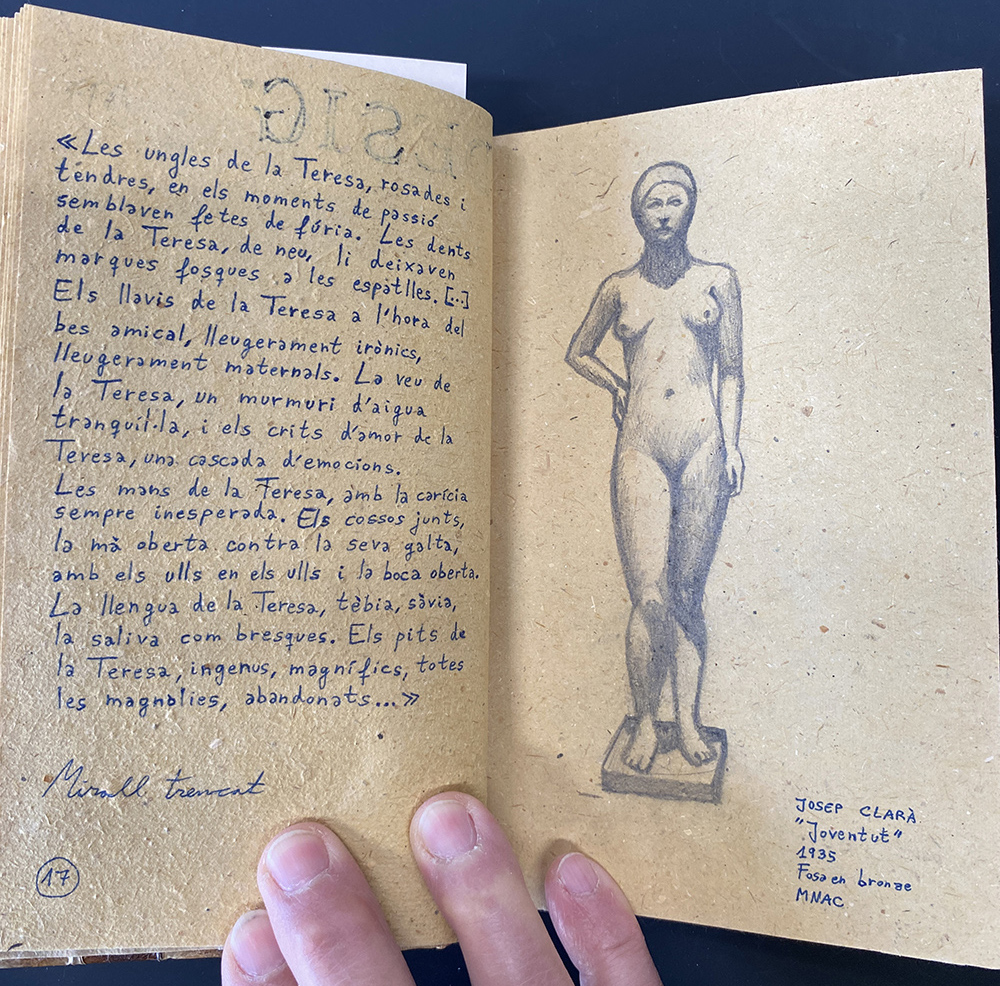 «Les ungles de la Teresa, rosades i
tendres, en els moments de passió
semblaven fetes de fúria. Les dents
de la Teresa, de neu, li deixaven
marques fosques a les espatlles. [...]
Els llavis de la Teresa a l'hora del
bes amical, lleugerament irònics,
lleugerament maternals. La veu de
la Teresa, un murmuri d'aigua
tranquil·la, i els crits d'amor de la
Teresa, una cascada d'emocions.
Les mans de la Teresa, amb la carícia
sempre inesperada. Els cossos junts,
la mà oberta contra la seva galta,
amb els ulls en els ulls i la boca oberta.
La llengua de la Teresa, tèbia, sàvia,
la saliva com bresques. Els pits de
la Teresa, ingenus, magnífics, totes
les magnòlies, abandonats...»
Mirall trencat
17
JOSEP CLARÀ
"Joventut"
1935
Fosa en bronze
MNAC